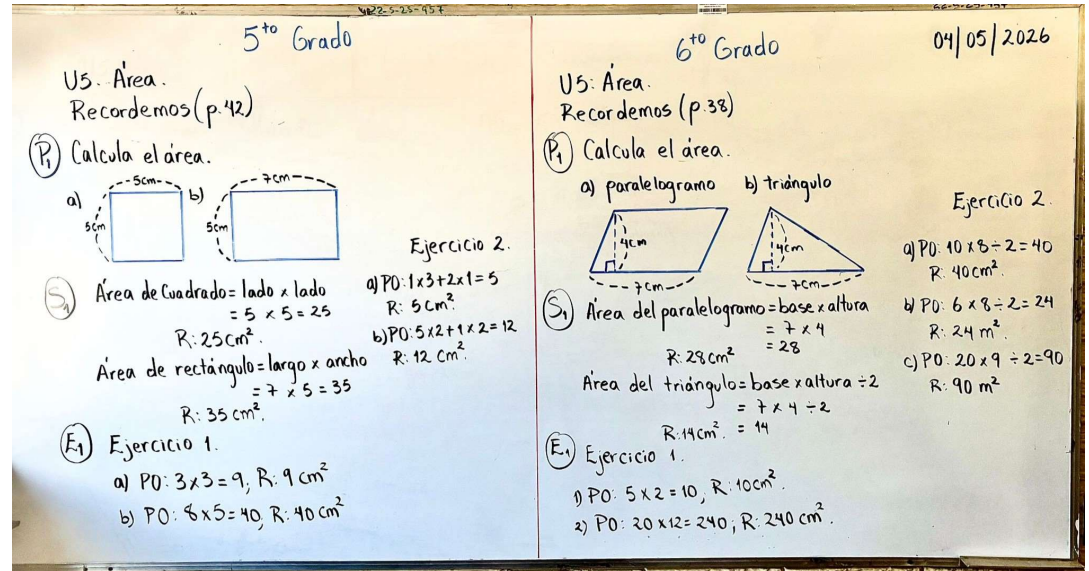 5to Grado
U5. Área.
Recordemos (p.42)
P1 Calcula el área.
a) 5cm 5cm
b) 7cm 5cm
S1 Área de Cuadrado = lado x lado
= 5 x 5 = 25
R: 25cm².
Área de rectángulo = largo x ancho
= 7 x 5 = 35
R: 35 cm².
E1 Ejercicio 1.
a) PO: 3x3=9, R: 9 cm²
b) PO: 8x5=40, R: 40 cm²
Ejercicio 2.
a) PO: 1x3+2x1=5
R: 5cm².
b) PO: 5x2+1x2=12
R: 12 cm².
6to Grado
04/05/2026
U5: Área.
Recordemos (p.38)
P1 Calcula el área.
a) paralelogramo b) triángulo
4cm 7cm
4cm 7cm
S1 Área del paralelogramo = base x altura
= 7 x 4
= 28
R: 28cm²
Área del triángulo = base x altura ÷2
= 7 x 4 ÷2
= 14
R: 14cm².
E1 Ejercicio 1.
1) PO: 5 x 2 = 10, R: 10cm².
2) PO: 20 x12= 240; R: 240 cm².
Ejercicio 2.
a) PO: 10 x 8 ÷ 2 = 40
R: 40cm².
b) PO: 6 x 8 ÷ 2 = 24
R: 24 m².
c) PO: 20 x 9 ÷ 2=90
R: 90 m²